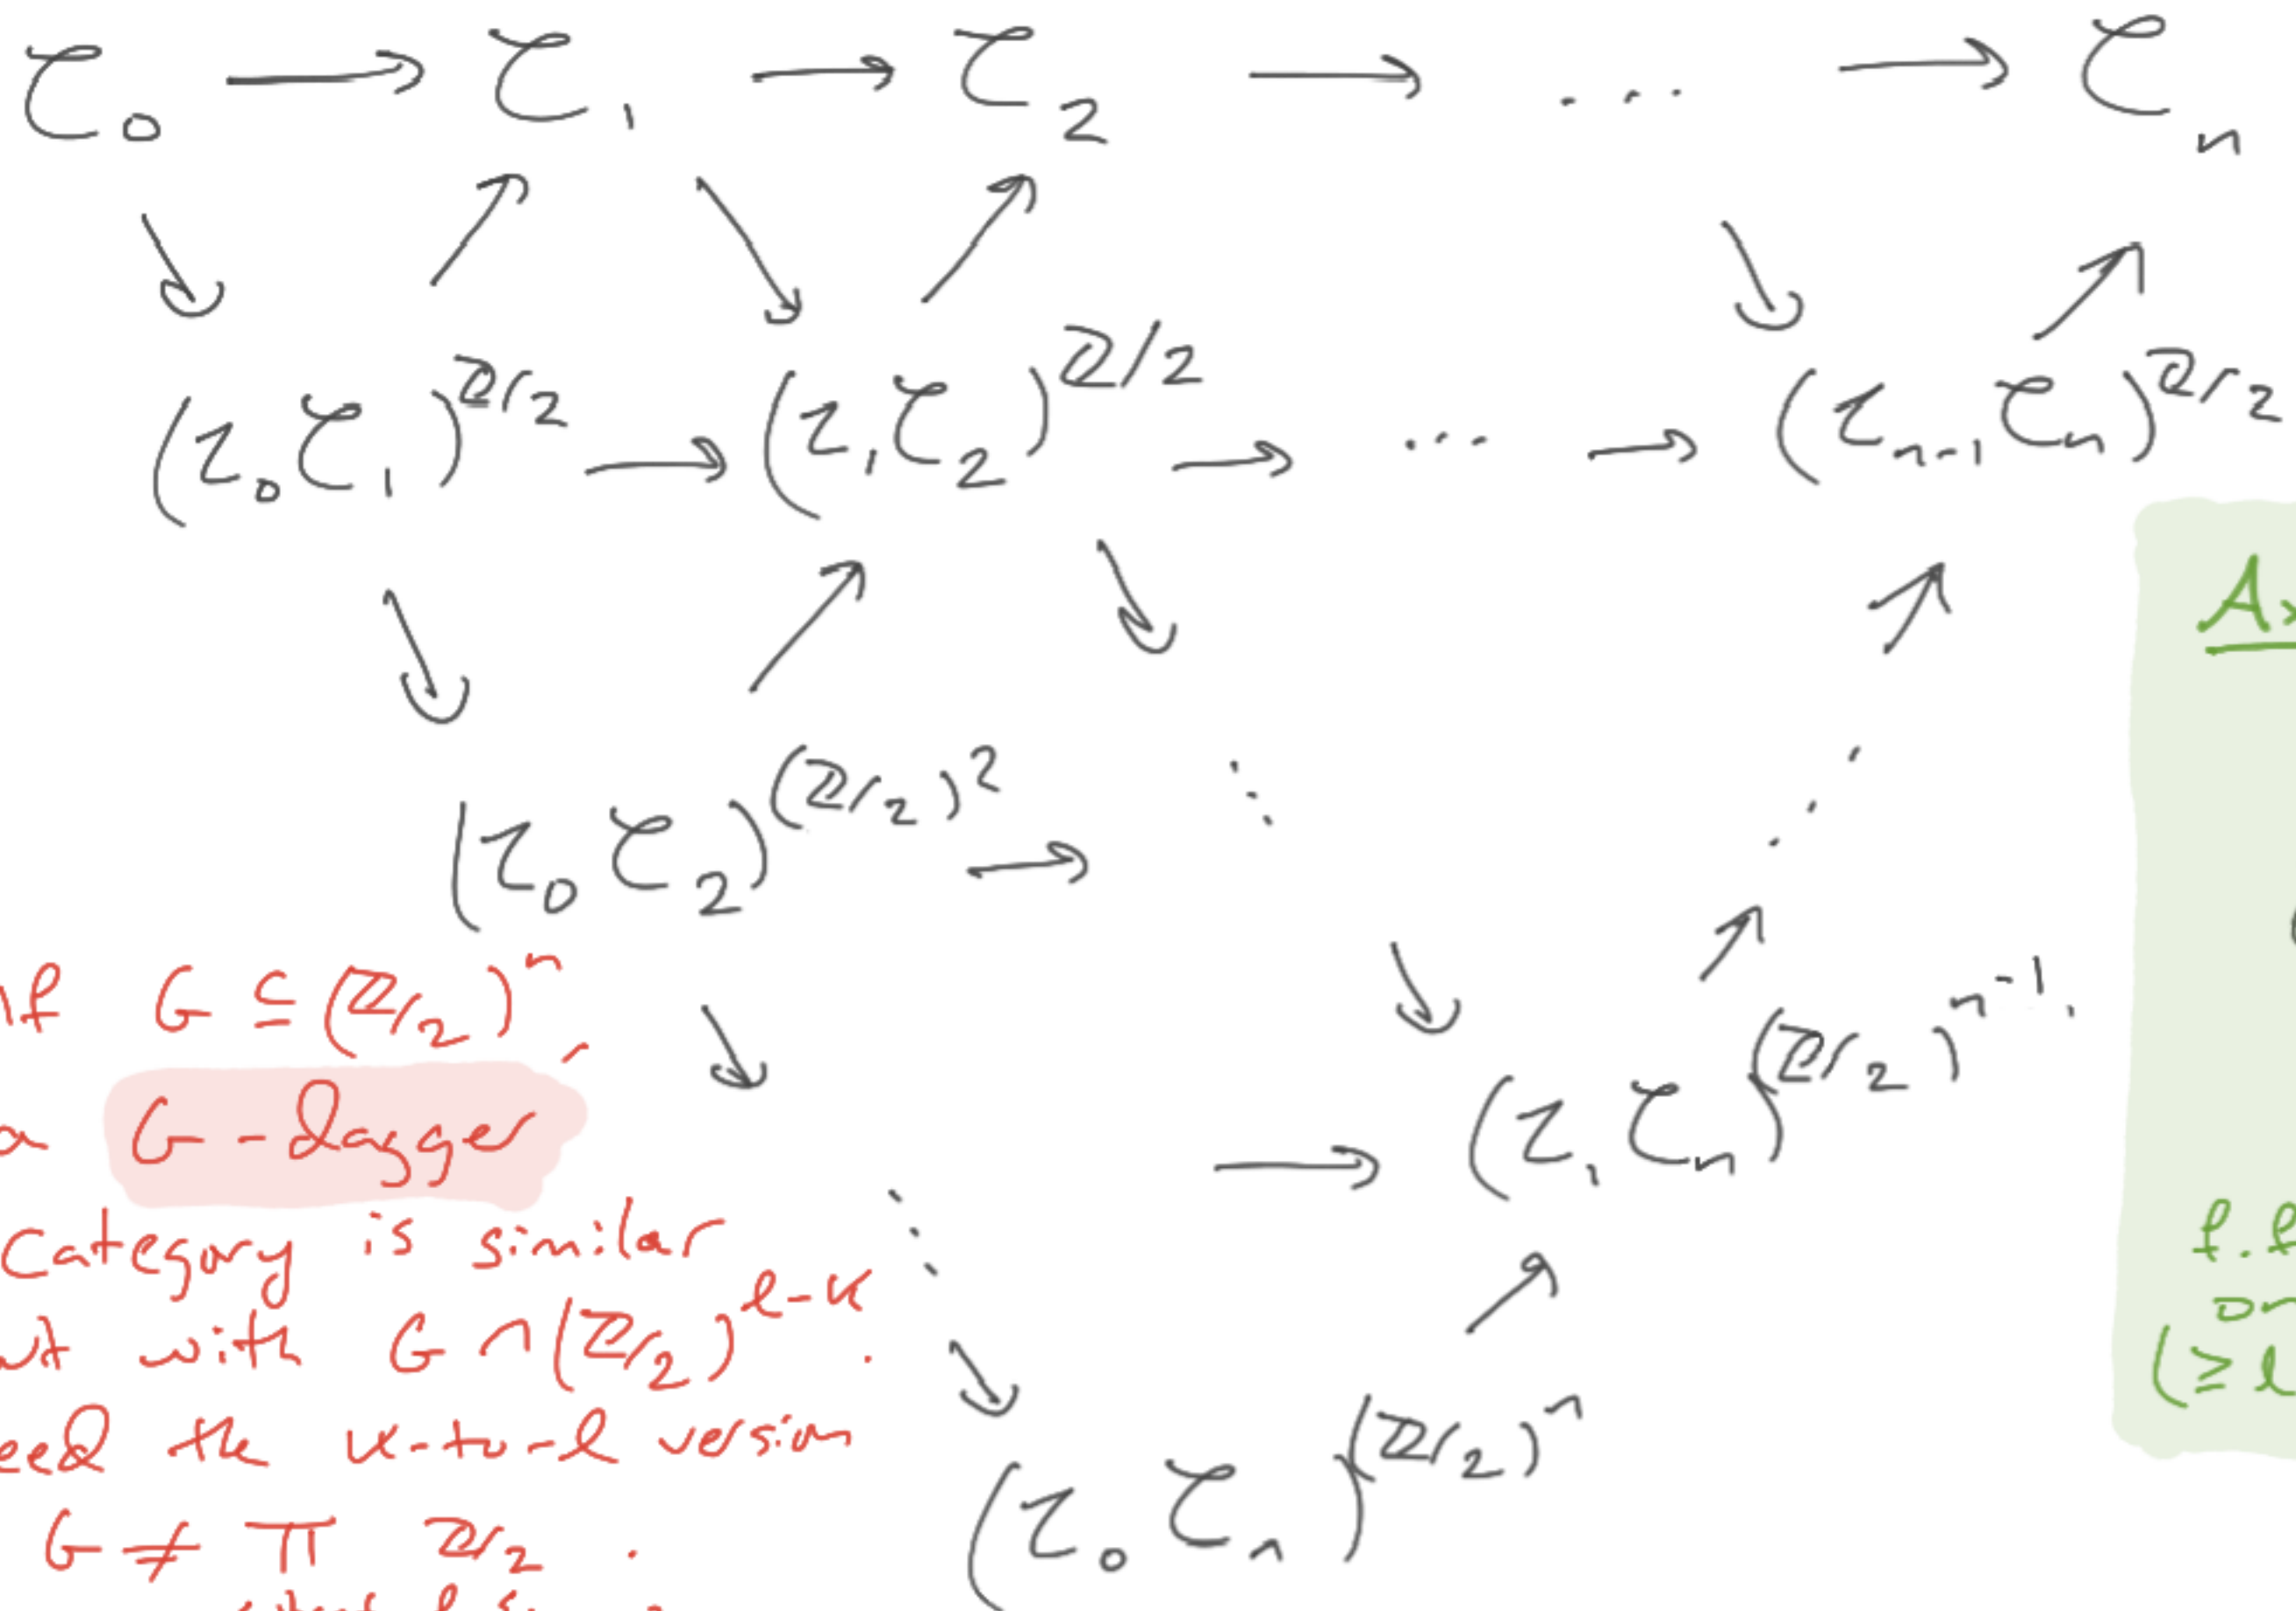 𝒞₀ → 𝒞₁ → 𝒞₂ → .... → 𝒞ₙ
(ι₀𝒞₁)^{ℤ/2} → (ι₁𝒞₂)^{ℤ/2} → ... → (ιₙ₋₁𝒞ₙ)^{ℤ/2}
(ι₀𝒞₂)^{(ℤ/2)²} →
→ (ι₁𝒞ₙ)^{(ℤ/2)^{n-1}}.
(ι₀𝒞ₙ)^{(ℤ/2)ⁿ}
G ⊆ (ℤ/2)ⁿ,
G-dagger
category is similar
with G ∩ (ℤ/2)^{l-k}.
the k-to-l version
G ≠ Π ℤ/2.
(≥ l